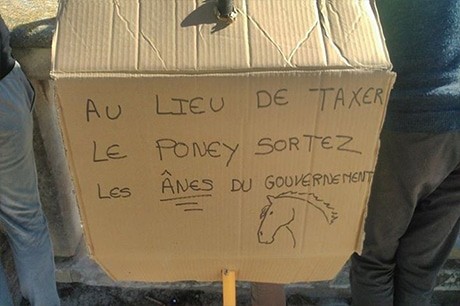 AU LIEU DE TAXER
LE PONEY SORTEZ
LES ÂNES DU GOUVERNEMENT